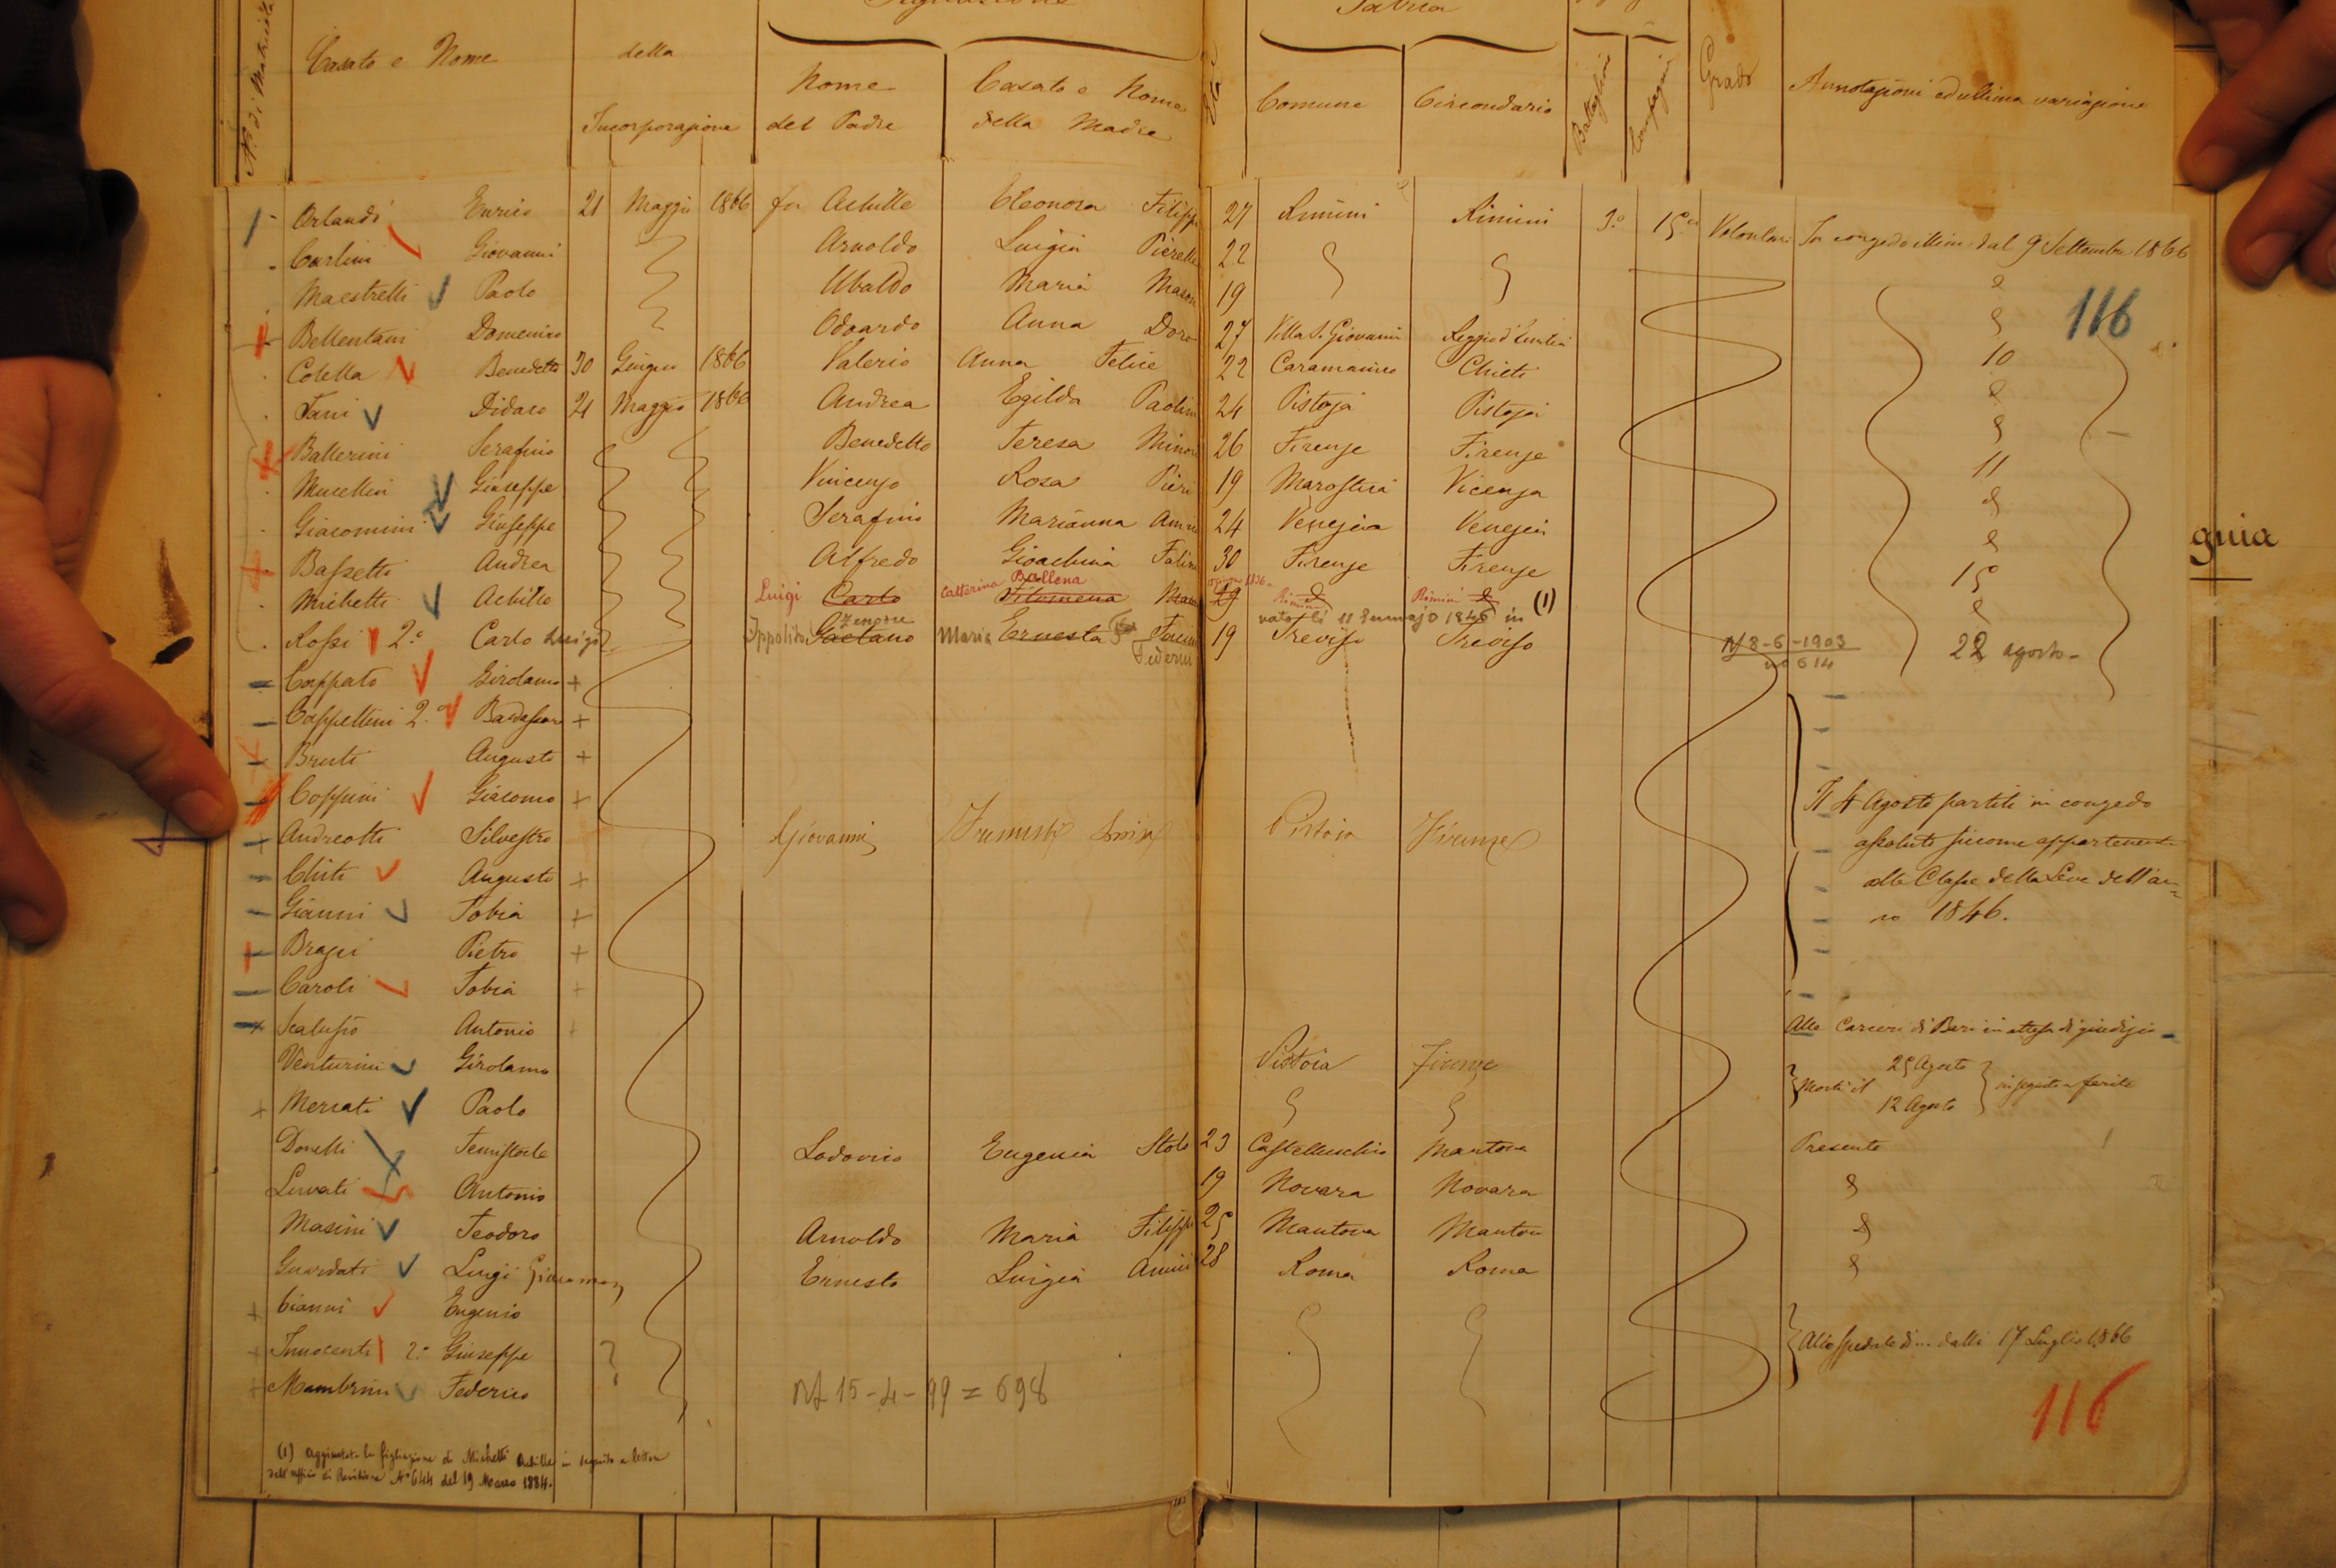 N. di Matricola Casato e Nome della Incorporazione Figliazione Nome del Padre Casato e Nome della Madre Età Patria Comune Circondario Battaglione Compagnia Grado Annotazioni ed ultima variazione
Orlandi Enrico 21 Maggio 1866 fu Achille Eleonora Filippi 27 Rimini Rimini 3.° 15.a Volontar. In congedo illim. dal 9 Settembre 1866
Carlini Giovanni Arnoldo Luigia 22
Maestrelli Paolo Ubaldo Maria 19 116
Bellentani Domenico Odoardo Anna Doro 27 Villa S. Giovanni Reggio d'Emilia
Colella Benedetto 30 Giugno 1866 Valerio Anna Felice 22 Caramanico Chieti 10
Fani Didaco 21 Maggio 1866 Andrea Egilda Paolin 24 Pistoja Pistoja
Ballerini Serafino Benedetto Teresa 26 Firenze Firenze
Mucellini Giuseppe Vincenzo Rosa Pieri 19 Marostica Vicenza 11
Giacomini Giuseppe Serafino Marianna 24 Venezia Venezia
Bassetti Andrea Alfredo Gioachina 30 Firenze Firenze 15
Michetti Achille Luigi Carlo Catterina Ballena Filomena 19 Rimini Rimini (1)
nato li 11 Gennajo 1846 in
Rossi 2.° Carlo Luigi Ippolito Gaetano Maria Ernesta 19 Treviso Treviso 22 agosto
8-6-1903
614
Coppato Girolamo +
Cappellini 2.° Baldassare +
Bruti Augusto +
Coppini Giacomo + Il 4 Agosto partiti in congedo
Andreotti Silvestro Giovanni Luisa Pistoia Firenze assoluto siccome appartenenti
Chiti Augusto + alla Classe della Leva dell'an=
Gianni Tobia + no 1846.
Bragei Pietro +
Caroli Tobia +
Antonio + Alle Carceri di Bari in attesa di giudizio
Venturini Girolamo Pistoia Firenze Morti il 25 Agosto in seguito a ferite
Mercati Paolo 12 Agosto
Donelli Temistocle Lodovico Eugenia Stolo 23 Castellucchio Mantova Presente
Luvati Antonio 19 Novara Novara
Masini Teodoro Arnoldo Maria Filippi 25 Mantova Mantova
Guardati Luigi Ernesto Luigia 28 Roma Roma
Cianni Eugenio
Innocenti 2.° Giuseppe ? All'ospedale di... dalli 17 Luglio 1866
Mambrini Federico 15-4-99 = 698
116
(1) Aggiustata la figliazione di Michetti Achille in seguito a lettera
dell'ufficio di Revisione N° 644 del 19 Marzo 1884.